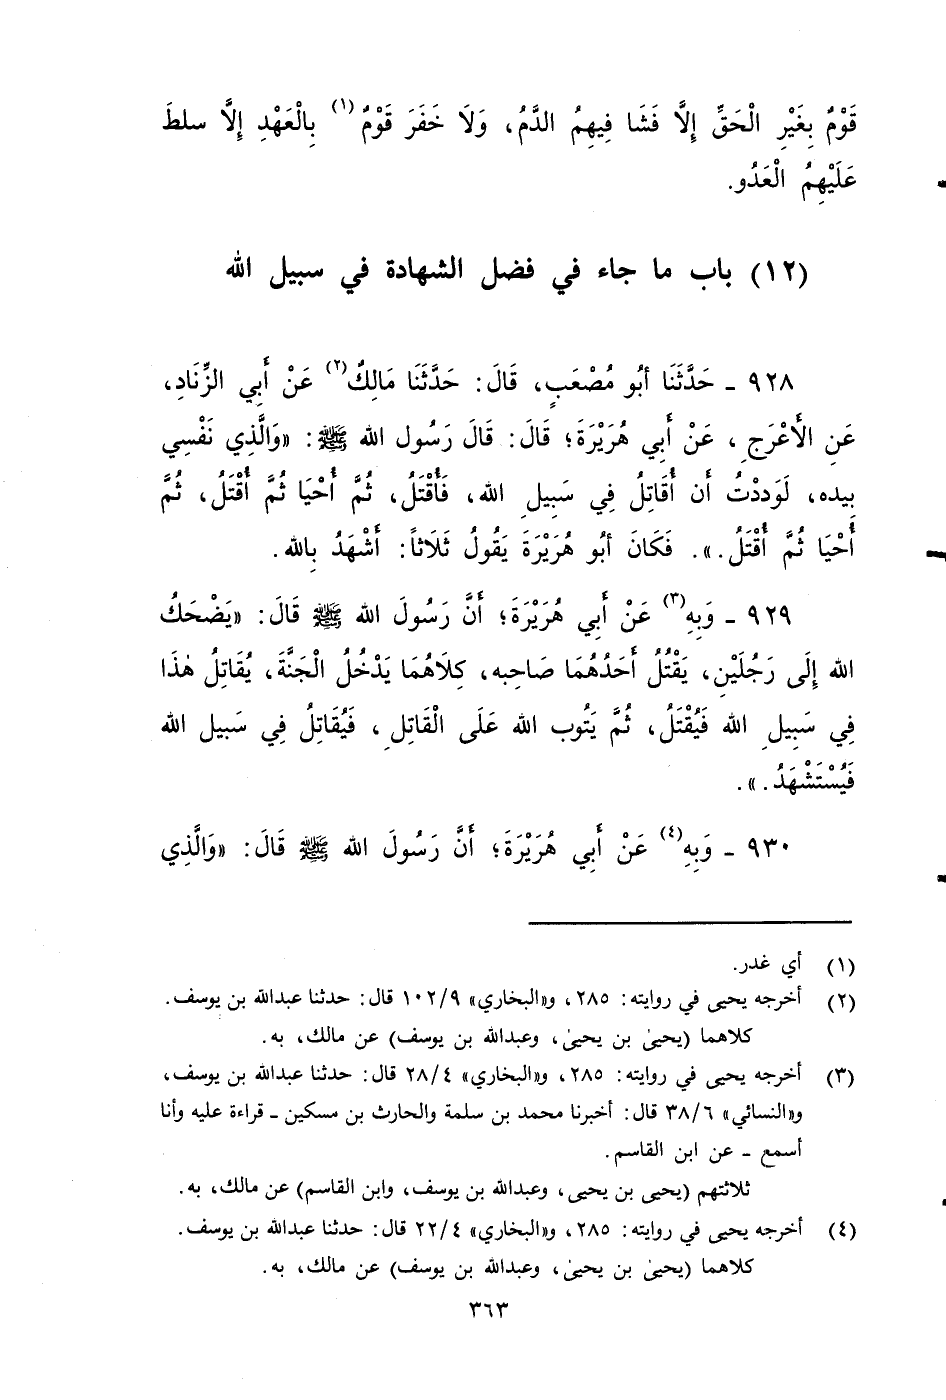 قَوْمٌ بِغَيْرِ الْحَقِّ إِلَّا فَشَا فِيهِمُ الدَّمُ، وَلَا خَفَرَ قَوْمٌ (١) بِالْعَهْدِ إِلَّا سلطَ
عَلَيْهِمُ الْعَدُو.
(١٢) باب ما جاء في فضل الشهادة في سبيل الله
٩٢٨ ـ حَدَّثَنَا أبُو مُصْعَبٍ، قَالَ: حَدَّثَنَا مَالِكٌ(٢) عَنْ أَبي الزِّنَادِ،
عَنِ الأَعْرَجِ، عَنْ أَبي هُرَيْرَةَ؛ قَالَ: قَالَ رَسُول الله ﷺ: «وَالَّذِي نَفْسِي
بِيدهِ، لَوَددْتُ أَن أُقَاتِلُ فِي سَبِيلِ الله، فَأقْتَلُ، ثُمَّ أُحْيَا ثُمَّ أُقْتَلُ، ثُمَّ
أُحْيَا ثُمَّ أُقْتَلُ.». فَكَانَ أبُو هُرَيْرَةَ يَقُولُ ثَلَاثاً: أَشْهَدُ بِالله.
٩٢٩ ـ وَبِهِ(٣) عَنْ أَبِي هُرَيْرَةَ؛ أَنَّ رَسُولَ الله ﷺ قَالَ: «يَضْحَكُ
الله إِلَى رَجُلَيْنِ، يَقْتُلُ أَحَدُهُمَا صَاحِبه، كِلاَهُمَا يَدْخُلُ الْجَنَّةَ، يُقَاتِلُ هٰذَا
فِي سَبِيلِ الله فَيُقْتَلُ، ثُمَّ يَتُوب الله عَلَى الْقَاتِلِ، فَيُقَاتِلُ فِي سَبِيل الله
فَيُسْتَشْهَدُ.».
٩٣٠ ـ وَبِهِ(٤) عَنْ أَبِي هُرَيْرَةَ؛ أَنَّ رَسُولَ الله ﷺ قَالَ: «وَالَّذِي
(١) أي غدر.
(٢) أخرجه يحيى في روايته: ٢٨٥، و«البخاري» ١٠٢/٩ قال: حدثنا عبدالله بن يوسف.
كلاهما (يحيىٰ بن يحيىٰ، وعبدالله بن يوسف) عن مالك، به.
(٣) أخرجه يحيى في روايته: ٢٨٥، و«البخاري» ٢٨/٤ قال: حدثنا عبدالله بن يوسف،
و«النسائي» ٣٨/٦ قال: أخبرنا محمد بن سلمة والحارث بن مسكين ـ قراءة عليه وأنا
أسمع ـ عن ابن القاسم.
ثلاثتهم (يحيى بن يحيى، وعبدالله بن يوسف، وابن القاسم) عن مالك، به.
(٤) أخرجه يحيى في روايته: ٢٨٥، و«البخاري» ٢٢/٤ قال: حدثنا عبدالله بن يوسف.
كلاهما (يحيىٰ بن يحيىٰ، وعبدالله بن يوسف) عن مالك، به.
٣٦٣